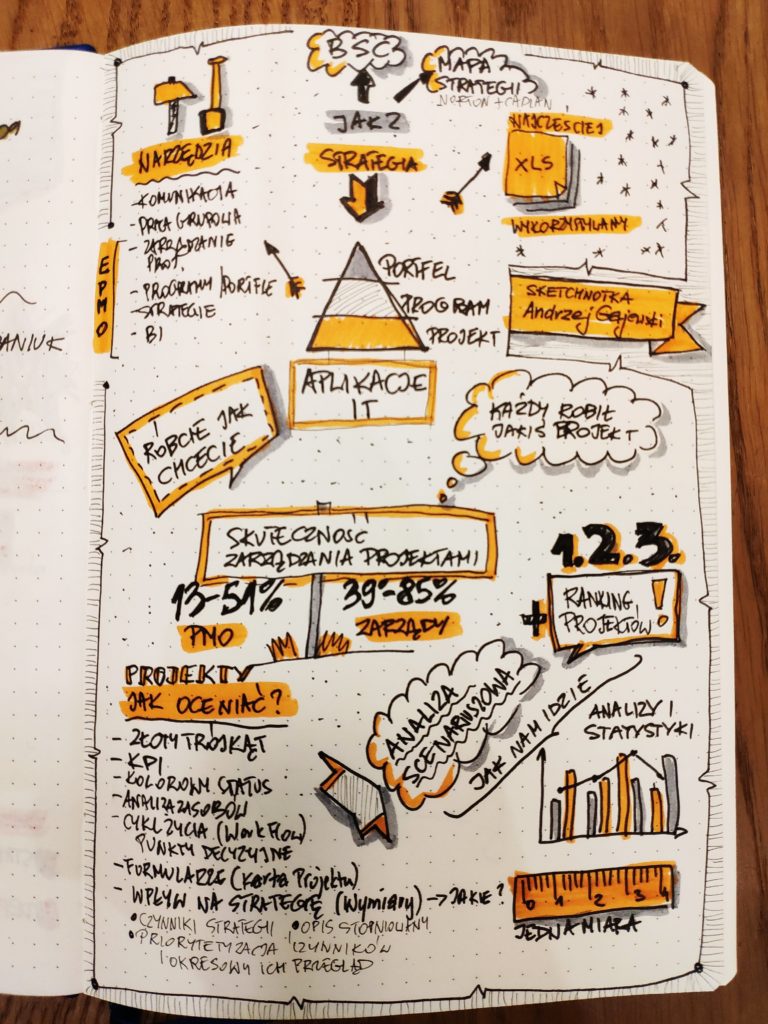 BSC
MAPA
STRATEGII
NORTON + CAPLAN
JAK?
STRATEGIA
NARZĘDZIA
- KOMUNIKACJA
- PRACA GRUPOWA
- ZARZĄDZANIE
PROJ.
- PROGRAMY/PORTFLE
STRATEGIE
- BI
EPMO
NAJCZĘŚCIEJ
XLS
WYKORZYSTYWANY
SKETCHNOTKA
Andrzej Gajewski
PORTFEL
PROGRAM
PROJEKT
APLIKACJE
IT
ROBCIE JAK
CHCECIE
KAŻDY ROBIŁ
JAKIŚ PROJEKT
ANIUK
SKUTECZNOŚĆ
ZARZĄDZANIA PROJEKTAMI
13-51%
PMO
39-85%
ZARZĄDY
1.2.3.
+ RANKING
PROJEKTÓW!
PROJEKTY
JAK OCENIAĆ?
- ZŁOTY TRÓJKĄT
- KPI
- KOLOROWY STATUS
- ANALIZA ZASOBÓW
- CYKL ŻYCIA (WorkFlow)
PUNKTY DECYZYJNE
- FORMULARZE (Karta Projektu)
- WPŁYW NA STRATEGIĘ (Wymiary) → JAKIE?
• CZYNNIKI STRATEGII • OPIS STOPNIOWANY
• PRIORYTETYZACJA CZYNNIKÓW
I OKRESOWY ICH PRZEGLĄD
ANALIZA
SCENARIUSZOWA
JAK NAM IDZIE
ANALIZY I
STATYSTYKI
0 1 2 3 4
JEDNA MIARA